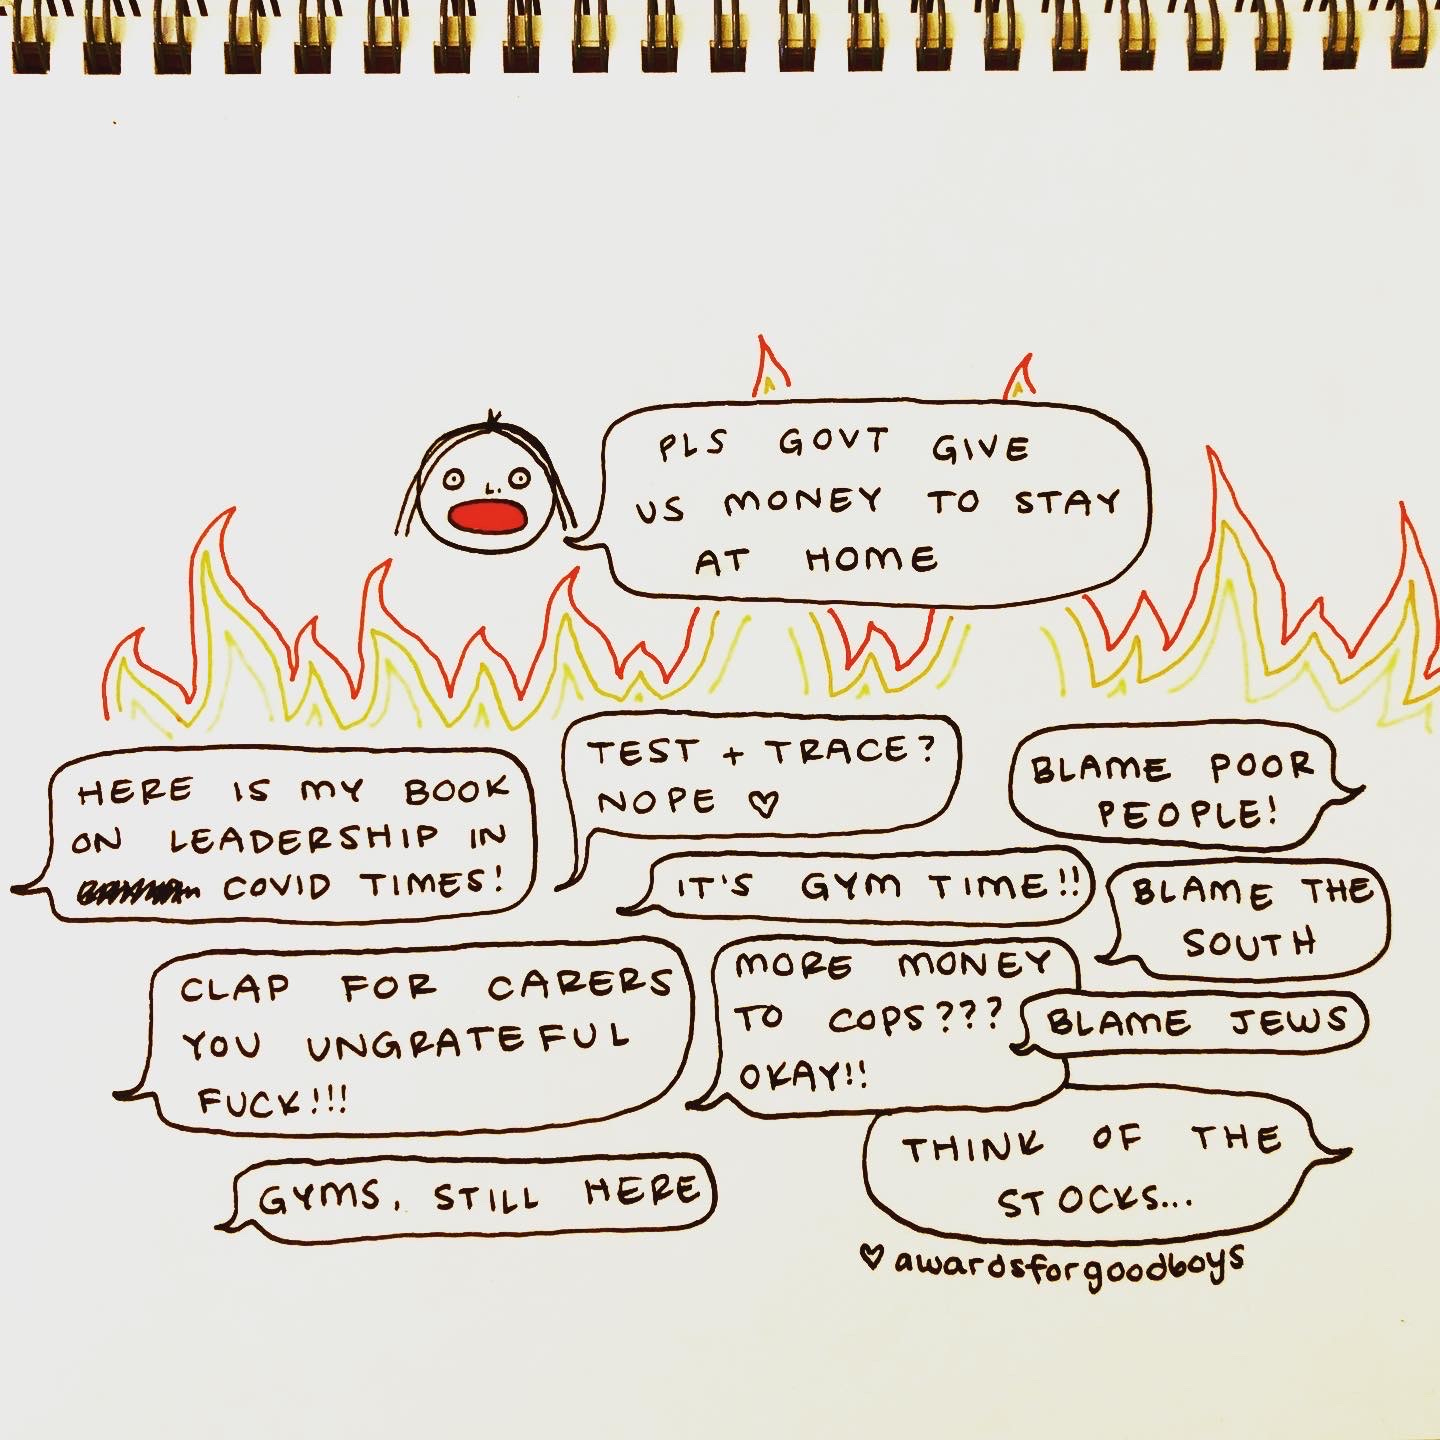 PLS GOVT GIVE
US MONEY TO STAY
AT HOME
HERE IS MY BOOK
ON LEADERSHIP IN
COVID TIMES!
TEST + TRACE?
NOPE ♡
BLAME POOR
PEOPLE!
IT'S GYM TIME!!
BLAME THE
SOUTH
CLAP FOR CARERS
YOU UNGRATEFUL
FUCK!!!
MORE MONEY
TO COPS???
OKAY!!
BLAME JEWS
GYMS, STILL HERE
THINK OF THE
STOCKS...
♡ awardsforgoodboys